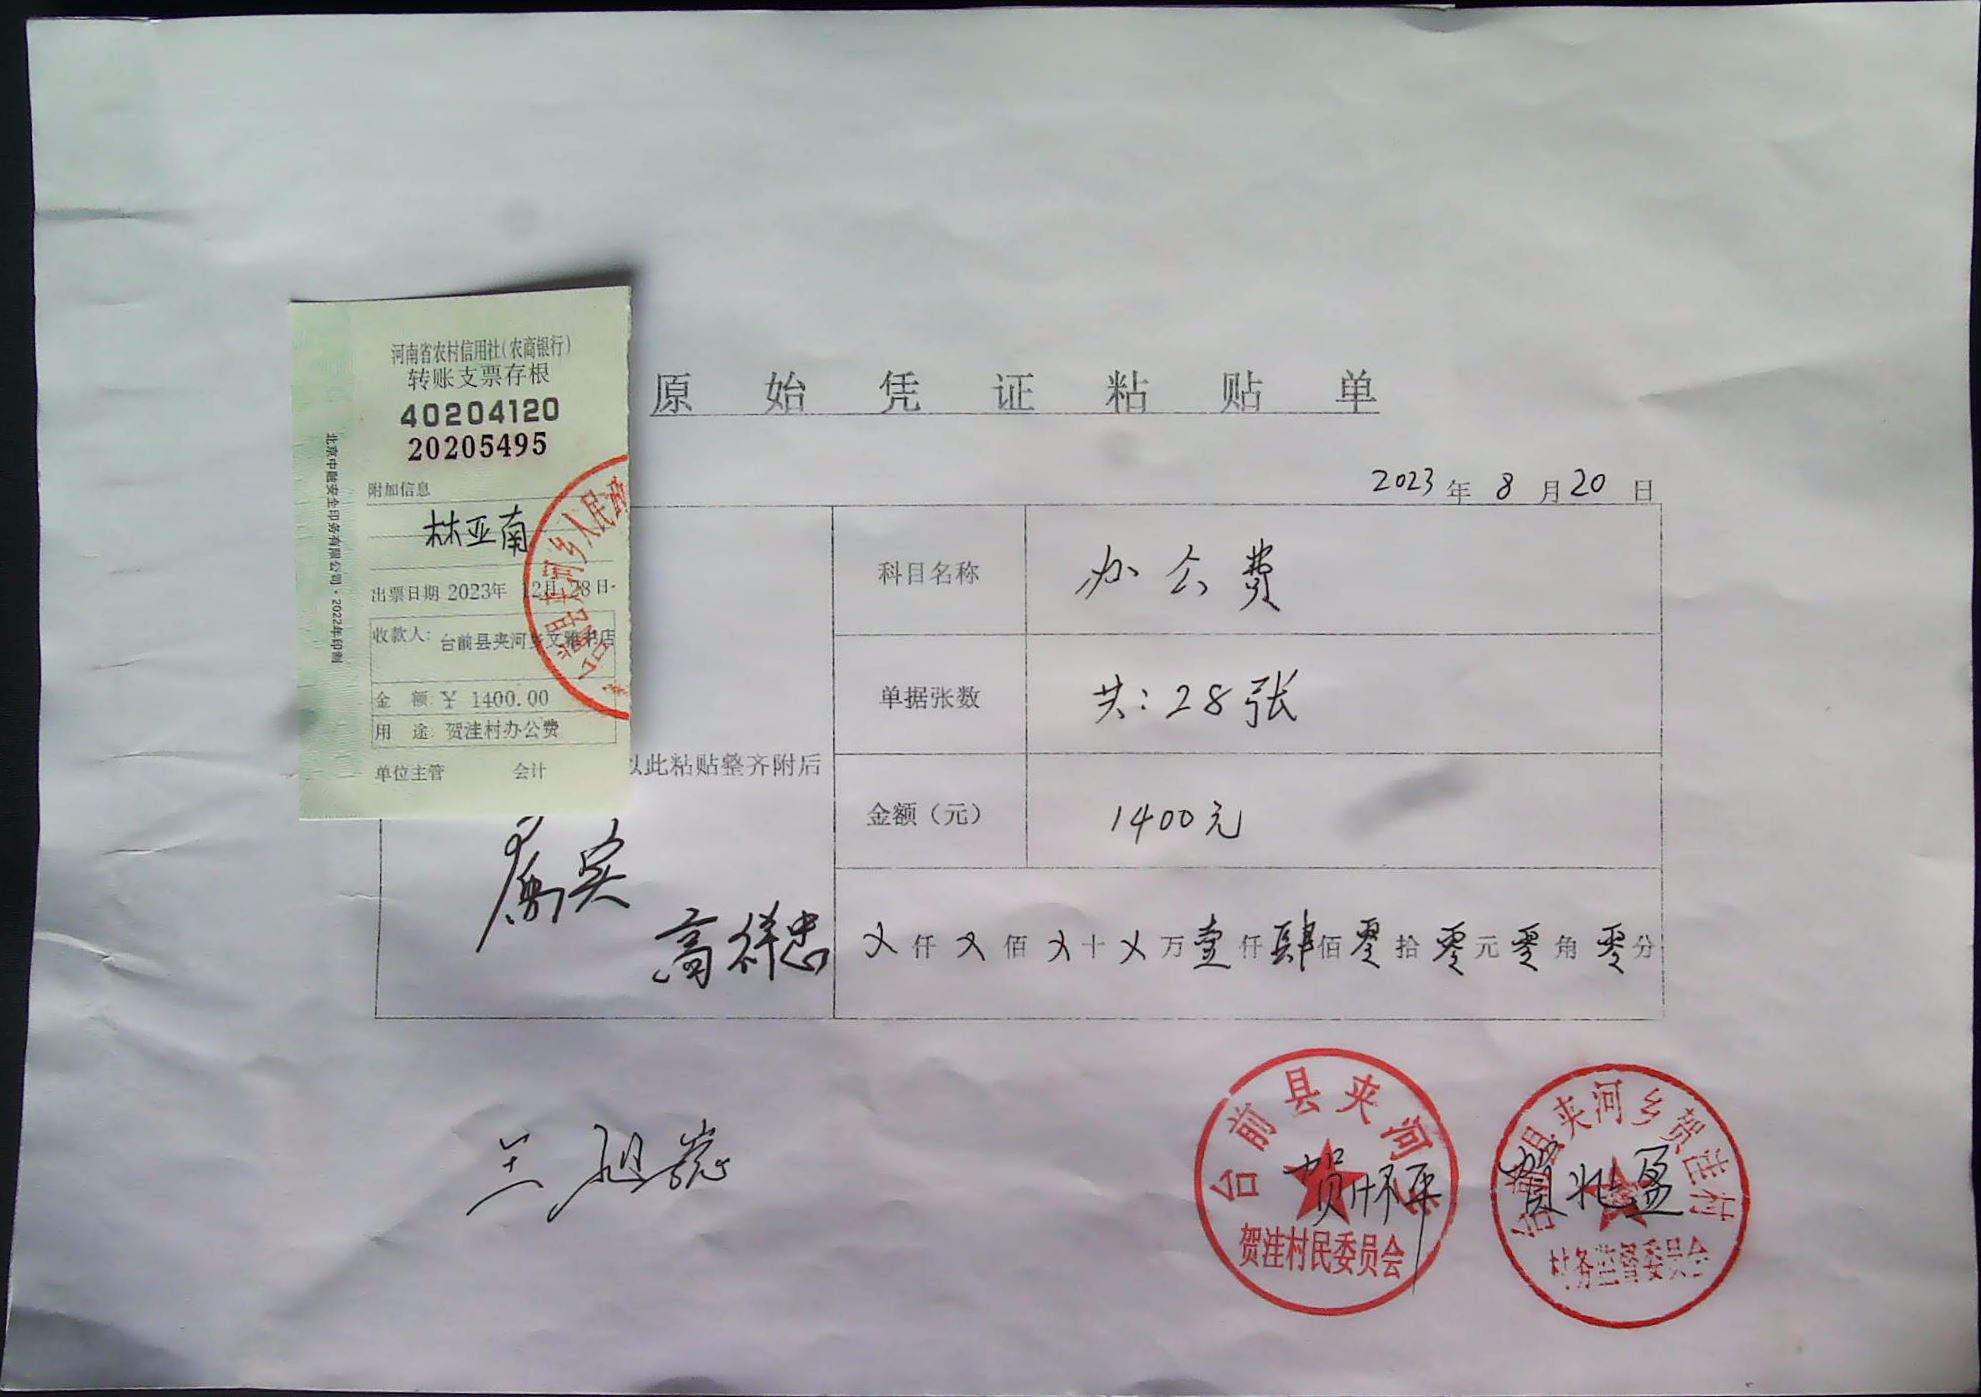 河南省农村信用社(农商银行)
转账支票存根
40204120
20205495
附加信息
林亚南
出票日期 2023年 12月 28日
收款人: 台前县夹河乡文雅书店
金 额 ¥ 1400.00
用 途 贺洼村办公费
单位主管 会计
北京中融安全印务有限公司·2022年印制
台前县夹河乡人民政
原始凭证粘贴单
2023年 8月20日
科目名称 办公费
单据张数 共:28张
以此粘贴整齐附后
金额(元) 1400元
属实
高祥忠
乂仟乂佰乂十乂万壹仟肆佰零拾零元零角零分
台前县夹河乡
贺洼村民委员会
台前县夹河乡贺洼村
村务监督委员会
贺兆盈